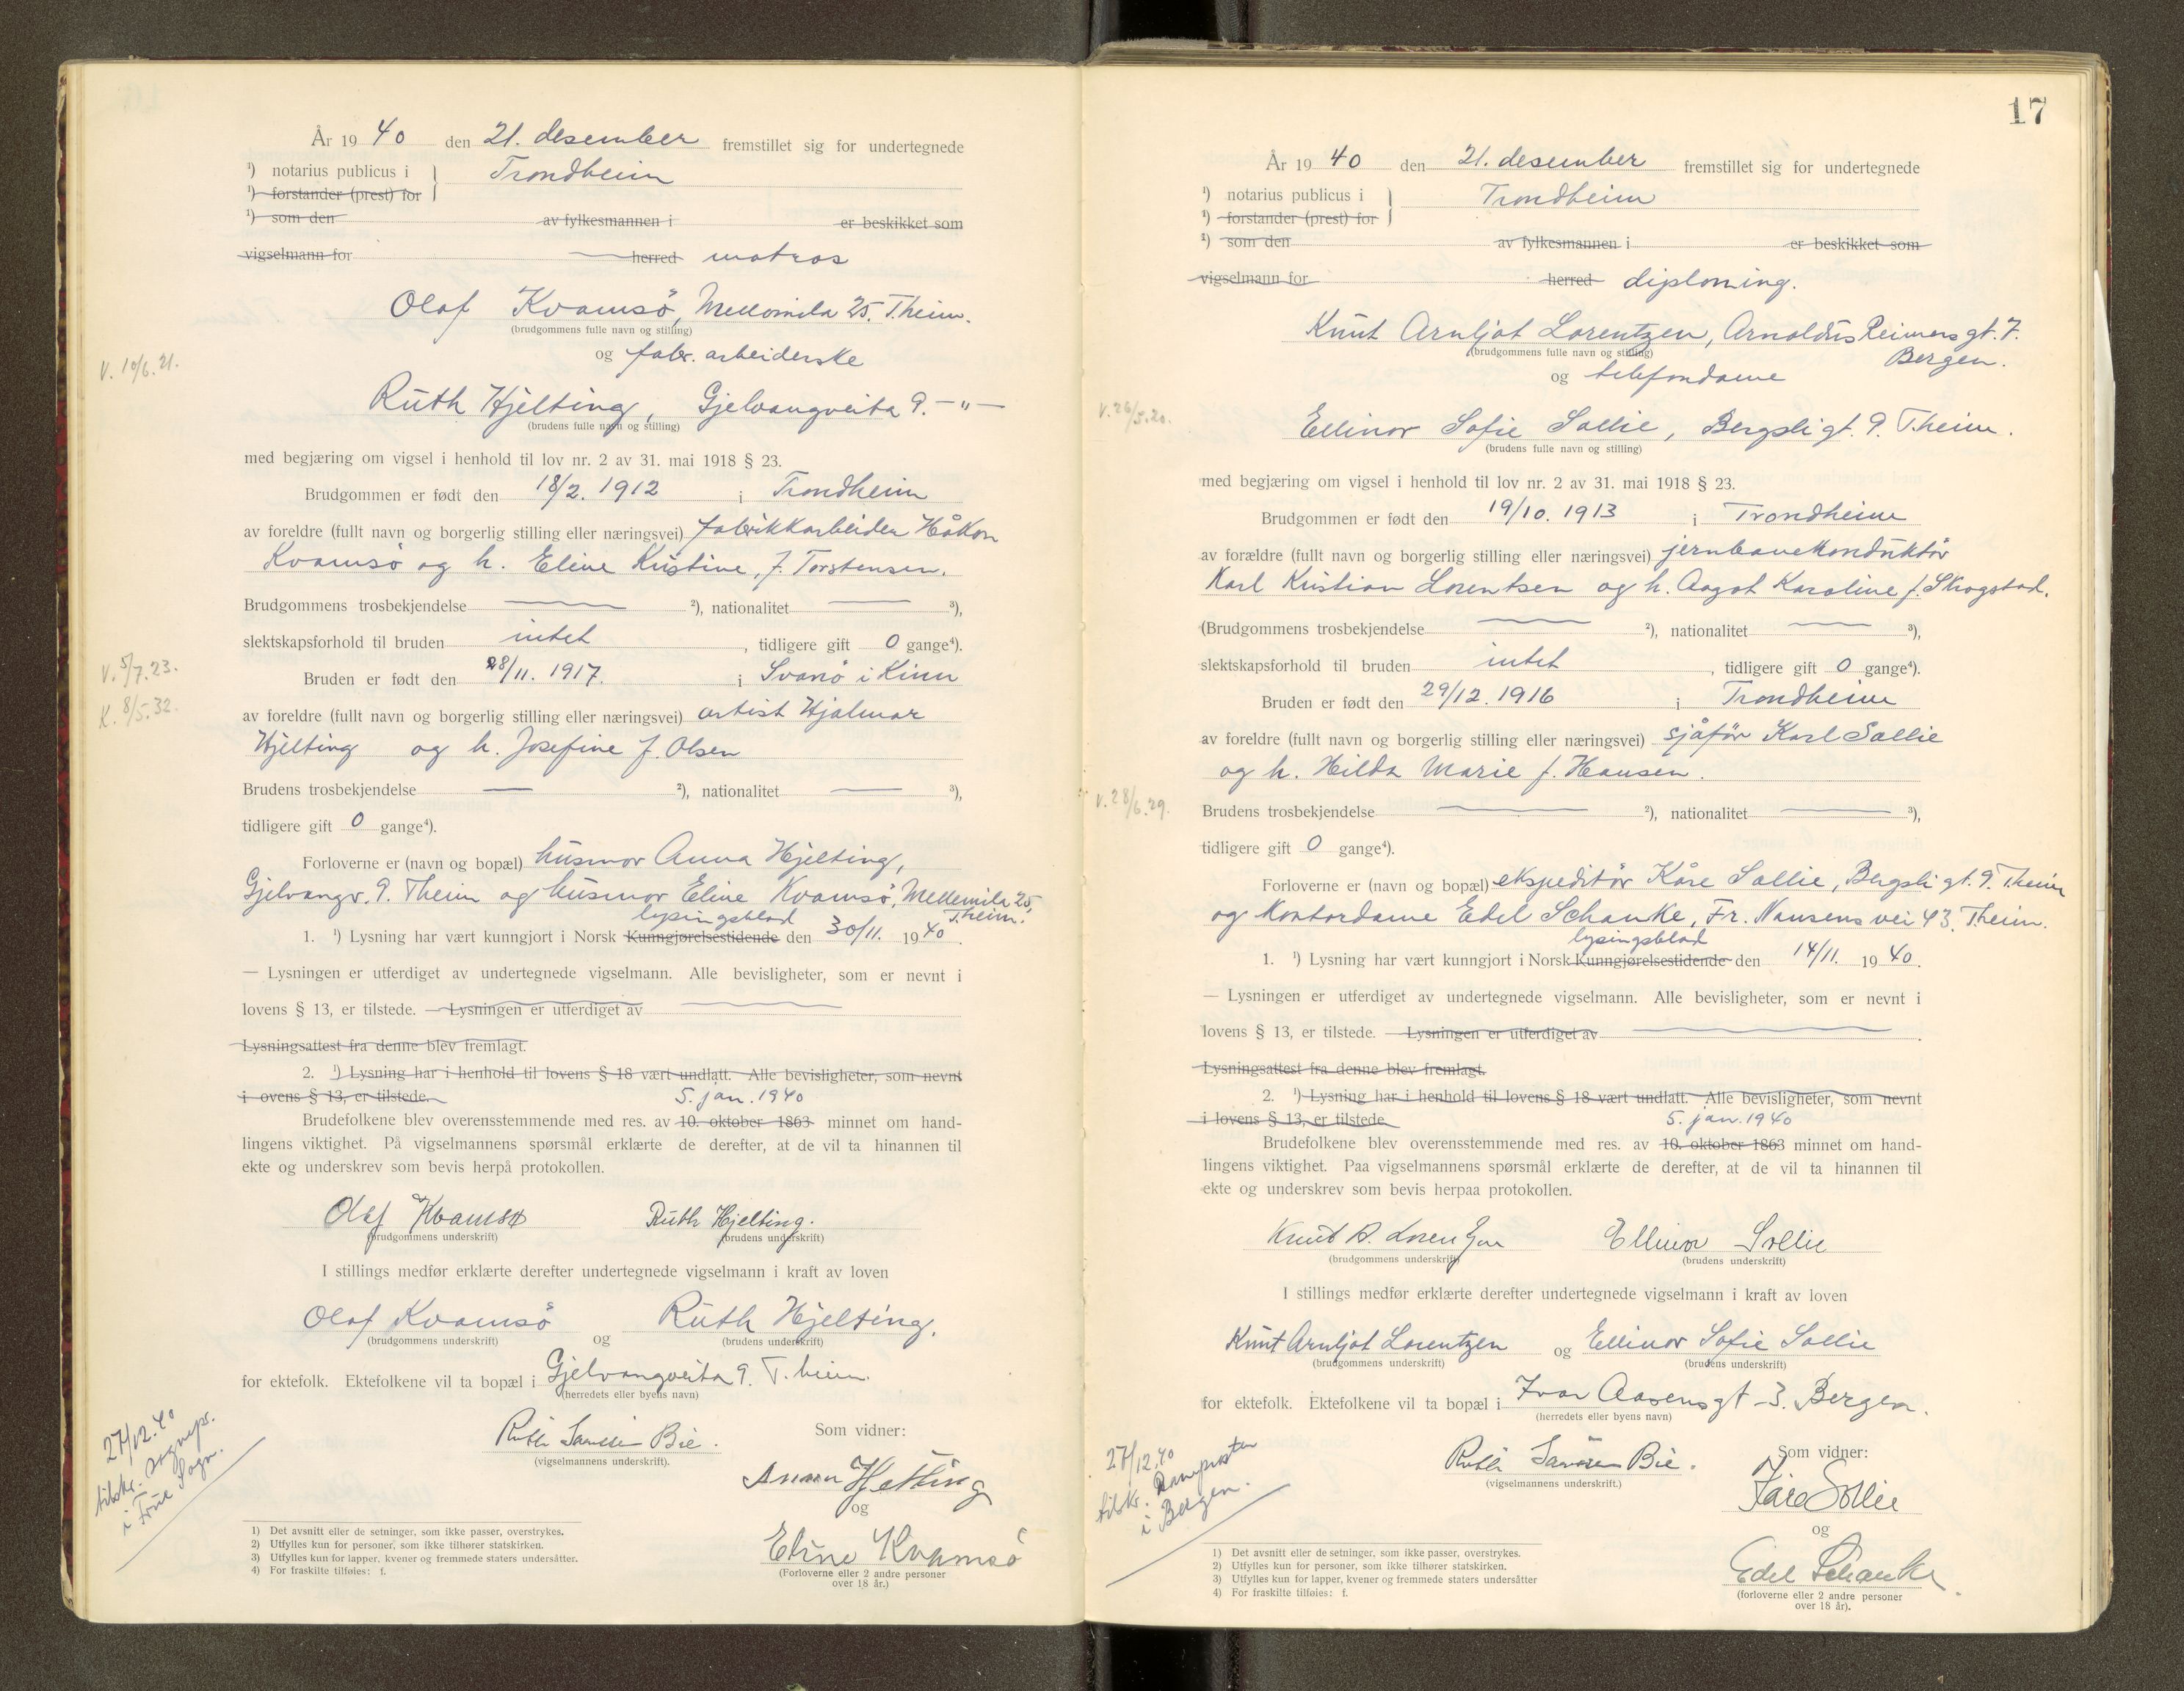 År 19 40 den 21. desember fremstillet sig for undertegnede
1) notarius publicus i Trondheim
1) forstander (prest) for
1) som den av fylkesmannen i er beskikket som
vigselmann for herred matros
Olaf Kvamsö, Mellomila 25. T.heim.
(brudgommens fulle navn og stilling)
og fabr. arbeiderske
V. 10/6.21.
Ruth Hjelting, Gjelvangveita 9. -"-
(brudens fulle navn og stilling)
med begjæring om vigsel i henhold til lov nr. 2 av 31. mai 1918 § 23.
Brudgommen er født den 18/2. 1912 i Trondheim
av foreldre (fullt navn og borgerlig stilling eller næringsvei) fabrikkarbeider Håkon
Kvamsö og h. Eline Kristine, f. Torstensen.
Brudgommens trosbekjendelse 2), nationalitet 3),
slektskapsforhold til bruden intet, tidligere gift 0 gange4).
V. 5/7.23.
Bruden er født den 28/11. 1917. i Svanö i Kinn
K. 8/5.32.
av foreldre (fullt navn og borgerlig stilling eller næringsvei) artist Hjalmar
Hjelting og h. Josefine f. Olsen
Brudens trosbekjendelse 2), nationalitet 3),
tidligere gift 0 gange4).
Forloverne er (navn og bopæl) husmor Anna Hjelting,
Gjelvangv. 9. Theim og husmor Eline Kvamsö, Mellemila 25,
lysingsblad T.heim.
1. 1) Lysning har vært kunngjort i Norsk Kunngjørelsestidende den 30/11. 19 40.
— Lysningen er utferdiget av undertegnede vigselmann. Alle bevisligheter, som er nevnt i
lovens § 13, er tilstede. — Lysningen er utferdiget av
Lysningsattest fra denne blev fremlagt.
2. 1) Lysning har i henhold til lovens § 18 vært undlatt. Alle bevisligheter, som nevnt
i ovens § 13, er tilstede. 5. jan. 1940
Brudefolkene blev overensstemmende med res. av 10. oktober 1863 minnet om hand-
lingens viktighet. På vigselmannens spørsmål erklærte de derefter, at de vil ta hinannen til
ekte og underskrev som bevis herpå protokollen.
Olaf Kvamsø Ruth Hjelting.
(brudgommens underskrift) (brudens underskrift)
I stillings medfør erklærte derefter undertegnede vigselmann i kraft av loven
Olaf Kvamsö og Ruth Hjelting.
(brudgommens underskrift) (brudens underskrift)
for ektefolk. Ektefolkene vil ta bopæl i Gjelvangveita 9. T.heim.
(herredets eller byens navn)
27/12.40
tilskr. sognepr.
i Sogn.
Ruth Bie. Som vidner:
(vigselmannens underskrift).
Anna Hjelting
og
Eline Kvamsö
(Forloverne eller 2 andre personer
over 18 år.)
1) Det avsnitt eller de setninger, som ikke passer, overstrykes.
2) Utfylles kun for personer, som ikke tilhører statskirken.
3) Utfylles kun for lapper, kvener og fremmede staters undersåtter.
4) For fraskilte tilføies: f.
17
År 19 40 den 21. desember fremstillet sig for undertegnede
1) notarius publicus i Trondheim
1) forstander (prest) for
1) som den av fylkesmannen i er beskikket som
vigselmann for herred diploming.
Knut Arnljot Lorentzen, Arnoldus Reimersgt. 7.
(brudgommens fulle navn og stilling) Bergen.
og telefondame
V. 26/5.20.
Ellinor Sofie Sollie, Bergsligt. 9. T.heim.
(brudens fulle navn og stilling)
med begjæring om vigsel i henhold til lov nr. 2 av 31. mai 1918 § 23.
Brudgommen er født den 19/10. 1913 i Trondheim
av forældre (fullt navn og borgerlig stilling eller næringsvei) jernbanekonduktör
Karl Kristian Lorentsen og h. Aagot Karoline f. Skogstad.
(Brudgommens trosbekjendelse 2), nationalitet 3),
slektskapsforhold til bruden intet, tidligere gift 0 gange4).
Bruden er født den 29/12. 1916 i Trondheim
av foreldre (fullt navn og borgerlig stilling eller næringsvei) sjåför Karl Sollie
og h. Hilda Marie f. Hansen.
V. 28/6.29.
Brudens trosbekjendelse 2), nationalitet 3),
tidligere gift 0 gange4).
Forloverne er (navn og bopæl) ekspeditör Kåre Sollie, Bergsligt. 9. T.heim
og kontordame Edel Schanke, Fr. Nansens vei 43. T.heim.
lysingsblad
1. 1) Lysning har vært kunngjort i Norsk Kunngjørelsestidende den 14/11. 19 40.
— Lysningen er utferdiget av undertegnede vigselmann. Alle bevisligheter, som er nevnt i
lovens § 13, er tilstede. — Lysningen er utferdiget av
Lysningsattest fra denne blev fremlagt.
2. 1) Lysning har i henhold til lovens § 18 vært undlatt. Alle bevisligheter, som nevnt
i lovens § 13, er tilstede. 5. jan. 1940
Brudefolkene blev overensstemmende med res. av 10. oktober 1863 minnet om hand-
lingens viktighet. Paa vigselmannens spørsmål erklærte de derefter, at de vil ta hinannen til
ekte og underskrev som bevis herpaa protokollen.
Knut A. Lorentzen Ellinor Sollie
(brudgommens underskrift) (brudens underskrift)
I stillings medfør erklærte derefter undertegnede vigselmann i kraft av loven
Knut Arnljot Lorentzen og Ellinor Sofie Sollie
(brudgommens underskrift) (brudens underskrift)
for ektefolk. Ektefolkene vil ta bopæl i Ivar Aasensgt 3. Bergen.
(herredets eller byens navn)
27/12.40
tilskr. Domprosten
i Bergen.
Ruth Bie. Som vidner:
(vigselmannens underskrift.)
Kåre Sollie
og
Edel Schanke.
(forloverne eller 2 andre personer
over 18 år).
1) Det avsnitt eller de setninger, som ikke passer, overstrykes.
2) Utfylles kun for personer, som ikke tilhører statskirken.
3) Utfylles kun for lapper, kvener og fremmede staters undersåtter
4) For fraskilte tilføies: f.